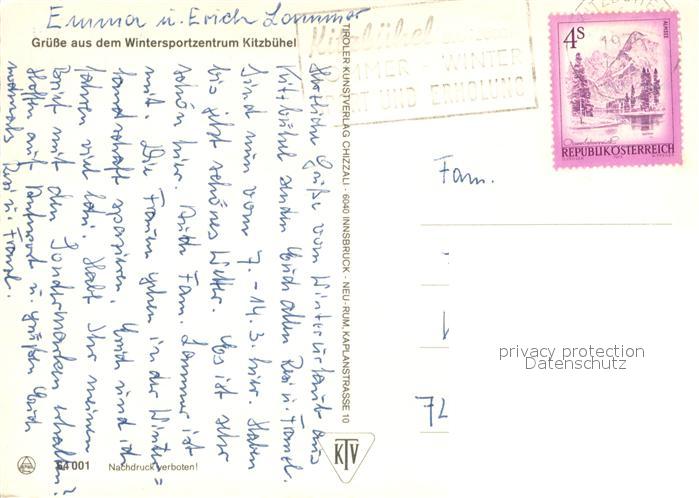 Emma u. Erich Lammer
Grüße aus dem Wintersportzentrum Kitzbühel
Herzliche Grüße vom Winterurlaub aus
Kitzbühel senden Euch allen Resi u. Franzl.
Sind nun vom 7. - 14. 3. hier. Haben
bis jetzt schönes Wetter. Es ist sehr
schön hier. Auch Fam. Lammer ist
mit. Die Frauen gehen in der Winter=
landschaft spazieren. Erich und ich
fahren viel Schi. Habt Ihr meinen
Brief mit den Sondermarken erhalten?
Hoffen auf Antwort u. grüßen Euch
nochmals Resi u. Franzl.
64 001
Nachdruck verboten!
TIROLER KUNSTVERLAG CHIZZALI · 6040 INNSBRUCK · NEU-RUM, KAPLANSTRASSE 10
KTV
Kitzbühel
SOMMER WINTER
SPORT UND ERHOLUNG
4S
ALMSEE
REPUBLIK ÖSTERREICH
Fam.
72
privacy protection
Datenschutz